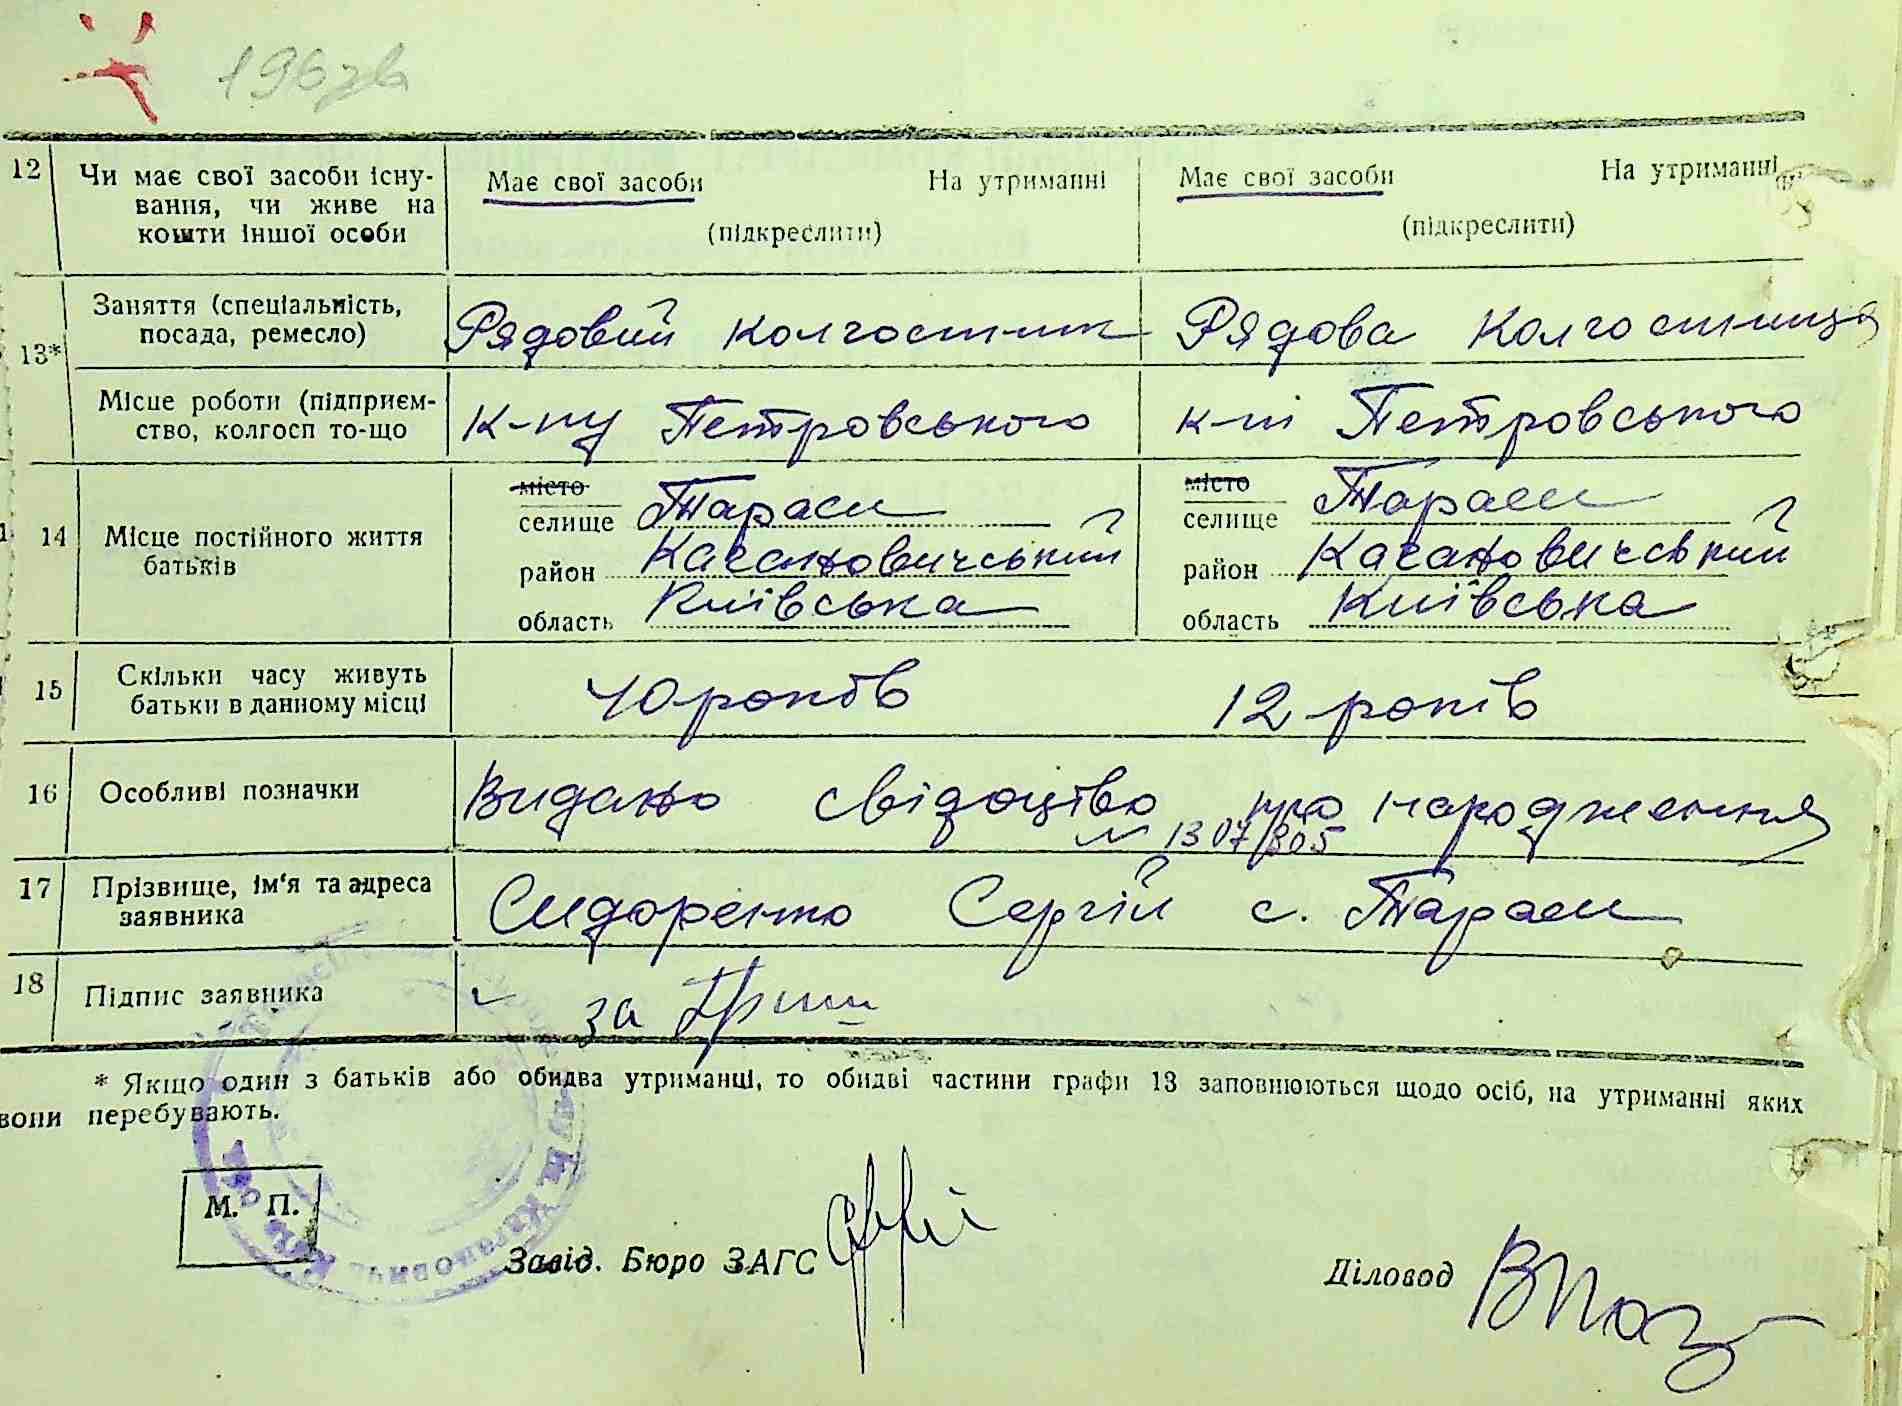 196зв
12 Чи має свої засоби існу-
вання, чи живе на
кошти іншої особи
Має свої засоби На утриманні
(підкреслити)
Має свої засоби На утриманні
(підкреслити)
13* Заняття (спеціальність,
посада, ремесло)
Рядовий колгоспник Рядова колгоспниця
Місце роботи (підприєм-
ство, колгосп то-що
к-пу Петровського к-пі Петровського
14 Місце постійного життя
батьків
місто
селище Тараси
район Кагановичський
область Київська
місто
селище Тараси
район Кагановичський
область Київська
15 Скільки часу живуть
батьки в данному місці
40 років 12 років
16 Особливі позначки
Видано свідоцтво про народження
№ 1307/805
17 Прізвище, ім'я та адреса
заявника
Сидоренко Сергій с. Тараси
18 Підпис заявника
за
* Якщо один з батьків або обидва утриманці, то обидві частини графи 13 заповнюються щодо осіб, на утриманні яких
вони перебувають.
М. П.
Завід. Бюро ЗАГС
Діловод